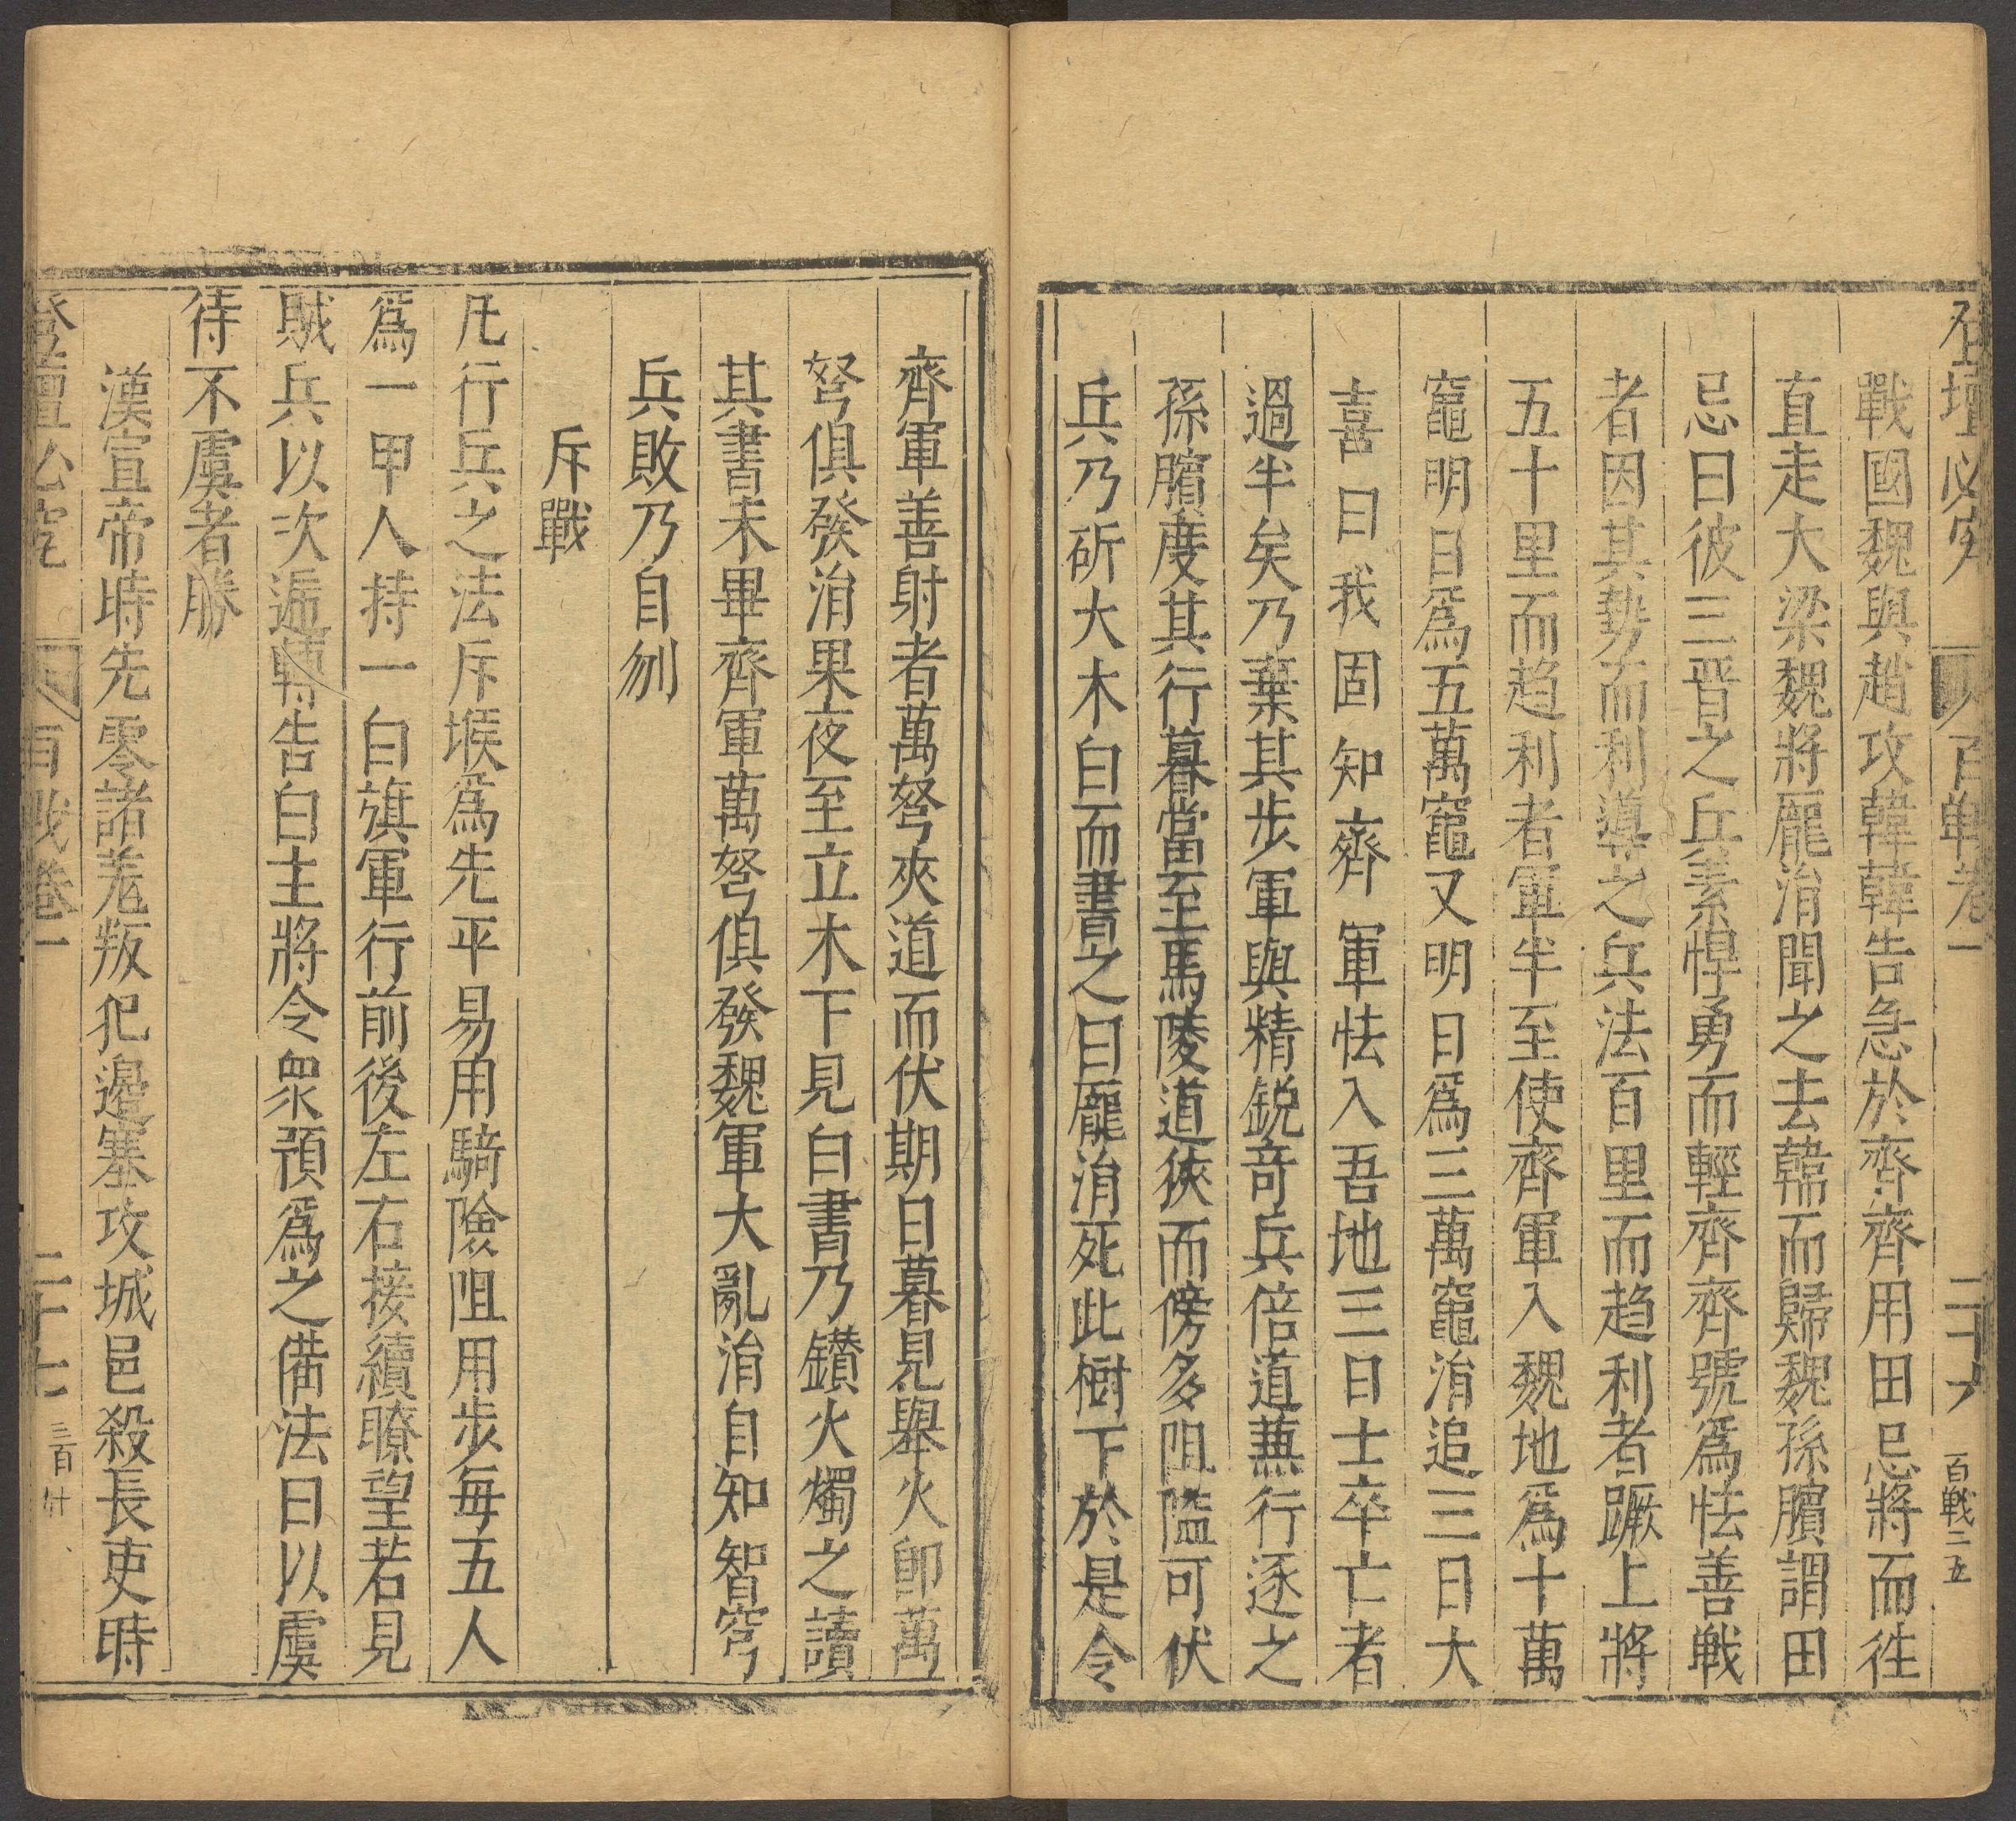 登壇必究 百戰卷一 二十六 百戰二五
戰國魏與趙攻韓韓告急於齊齊用田忌將而徃
直走大梁魏將龐涓聞之去韓而歸魏孫臏謂田
忌曰彼三晉之兵素悍勇而輕齊齊號爲怯善戦
者因其勢而利導之兵法百里而趋利者蹶上將
五十里而趋利者軍半至使齊軍入魏地爲十萬
竈明日爲五萬竈又明日爲三萬竈涓追三日大
喜曰我固知齊軍怯入吾地三日士卒亡者
過半矣乃棄其步軍與精銳竒兵倍道蒹行逐之
孫臏度其行暮當至馬陵道狹而傍多阻隘可伏
兵乃斫大木白而書之曰龐涓死此樹下於是令
齊軍善射者萬弩夾道而伏期日暮見舉火卽萬
弩俱發涓果夜至立木下見白書乃鑚火燭之讀
其書未畢齊軍萬弩俱發魏軍大亂涓自知智窮
兵敗乃自刎
斥戰
凡行兵之法斥堠爲先平易用騎險阻用步每五人
爲一甲人持一白旗軍行前後左右接續瞭望若見
賊兵以次逓轉告白主將令衆預爲之備法曰以虞
待不虞者勝
漢宣帝時先零諸羌叛犯邉塞攻城邑殺長吏時
登壇必究 百戰卷一 二十七 三百卄